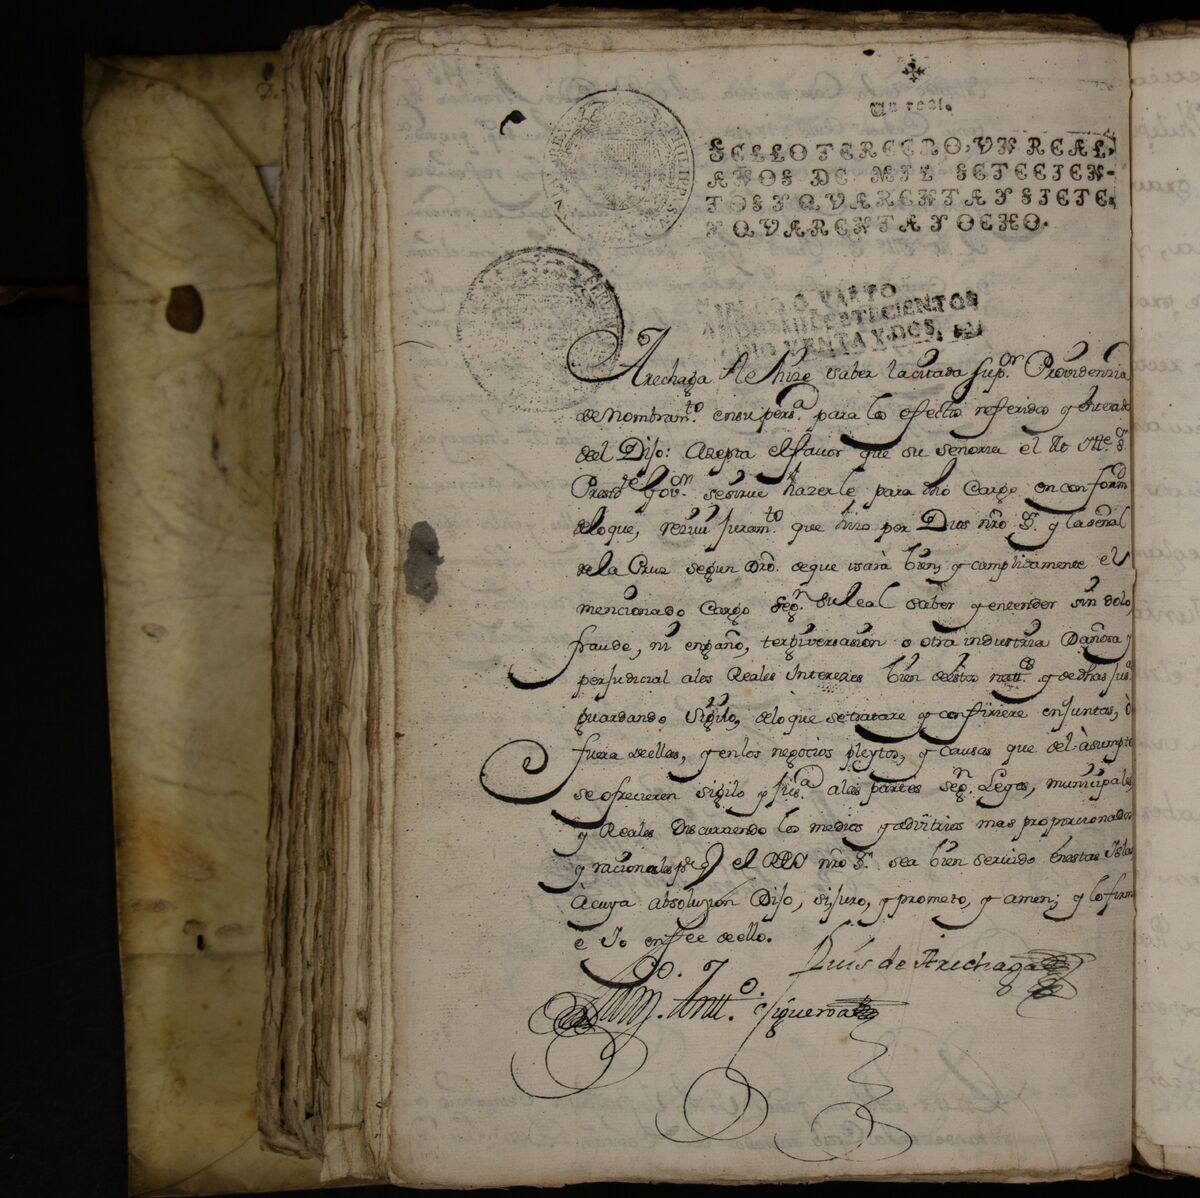 Un real.
SELLO TERCERO, VN REAL,
AÑOS DE MIL SETECIEN-
TOS Y QVARENTA Y SIETE,
Y QVARENTA Y OCHO.
QVARTO
AÑOS DE MIL SETECIENTOS
CINQVENTA Y DOS,
Arechaga le hize saber la citada sup.or Providenzia
de Nombram.to en su pers.a para los efectos referidos y enterado
del Dijo: Azepta el favor que su señoria el
Presid.te Gov.or se sirve hazerle para dho Cargo en conformd
de lo que, reziui juram.to que hizo por Dios nrõ S.r y la señal
de la Cruz segun Dro. de que usarà bien, y cumplidamente el
mencionado Cargo seg.n su leal saber y entender sin dolo,
fraude, ni engaño, terguiversasion o otra industria Dañosa y
perjudicial a los Reales Intereses bien destos y dedhas
guardando Sigilo, de lo que se tratare y confiriere en juntas, ò
fuera de ellas, y en los negocios pleytos, y causas que del àsumpto
se ofrecieren sigilo y a las partes seg.n Leyes, municipales
y Reales Discurriendo los medios y advitrios mas proporcionados
y racionales el REY nrõ S.r sea bien servido en estas Islas
à cuya absoluzion Dijo, si juro, y prometo, y amen; y lo firmò
e Yo en fee de ello.
Luis de Arechaga
Ant.o Figueroa